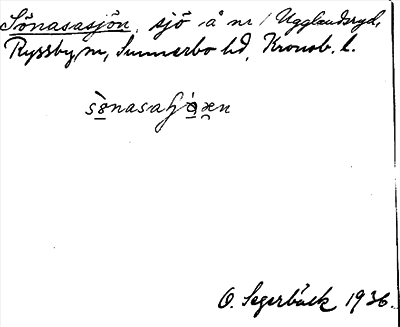 Sönasasjön, sjö å nr 1 Ugglandsryd,
Ryssby sn, Sunnerbo hd, Kronob. l.
O. Segerbäck 1936.